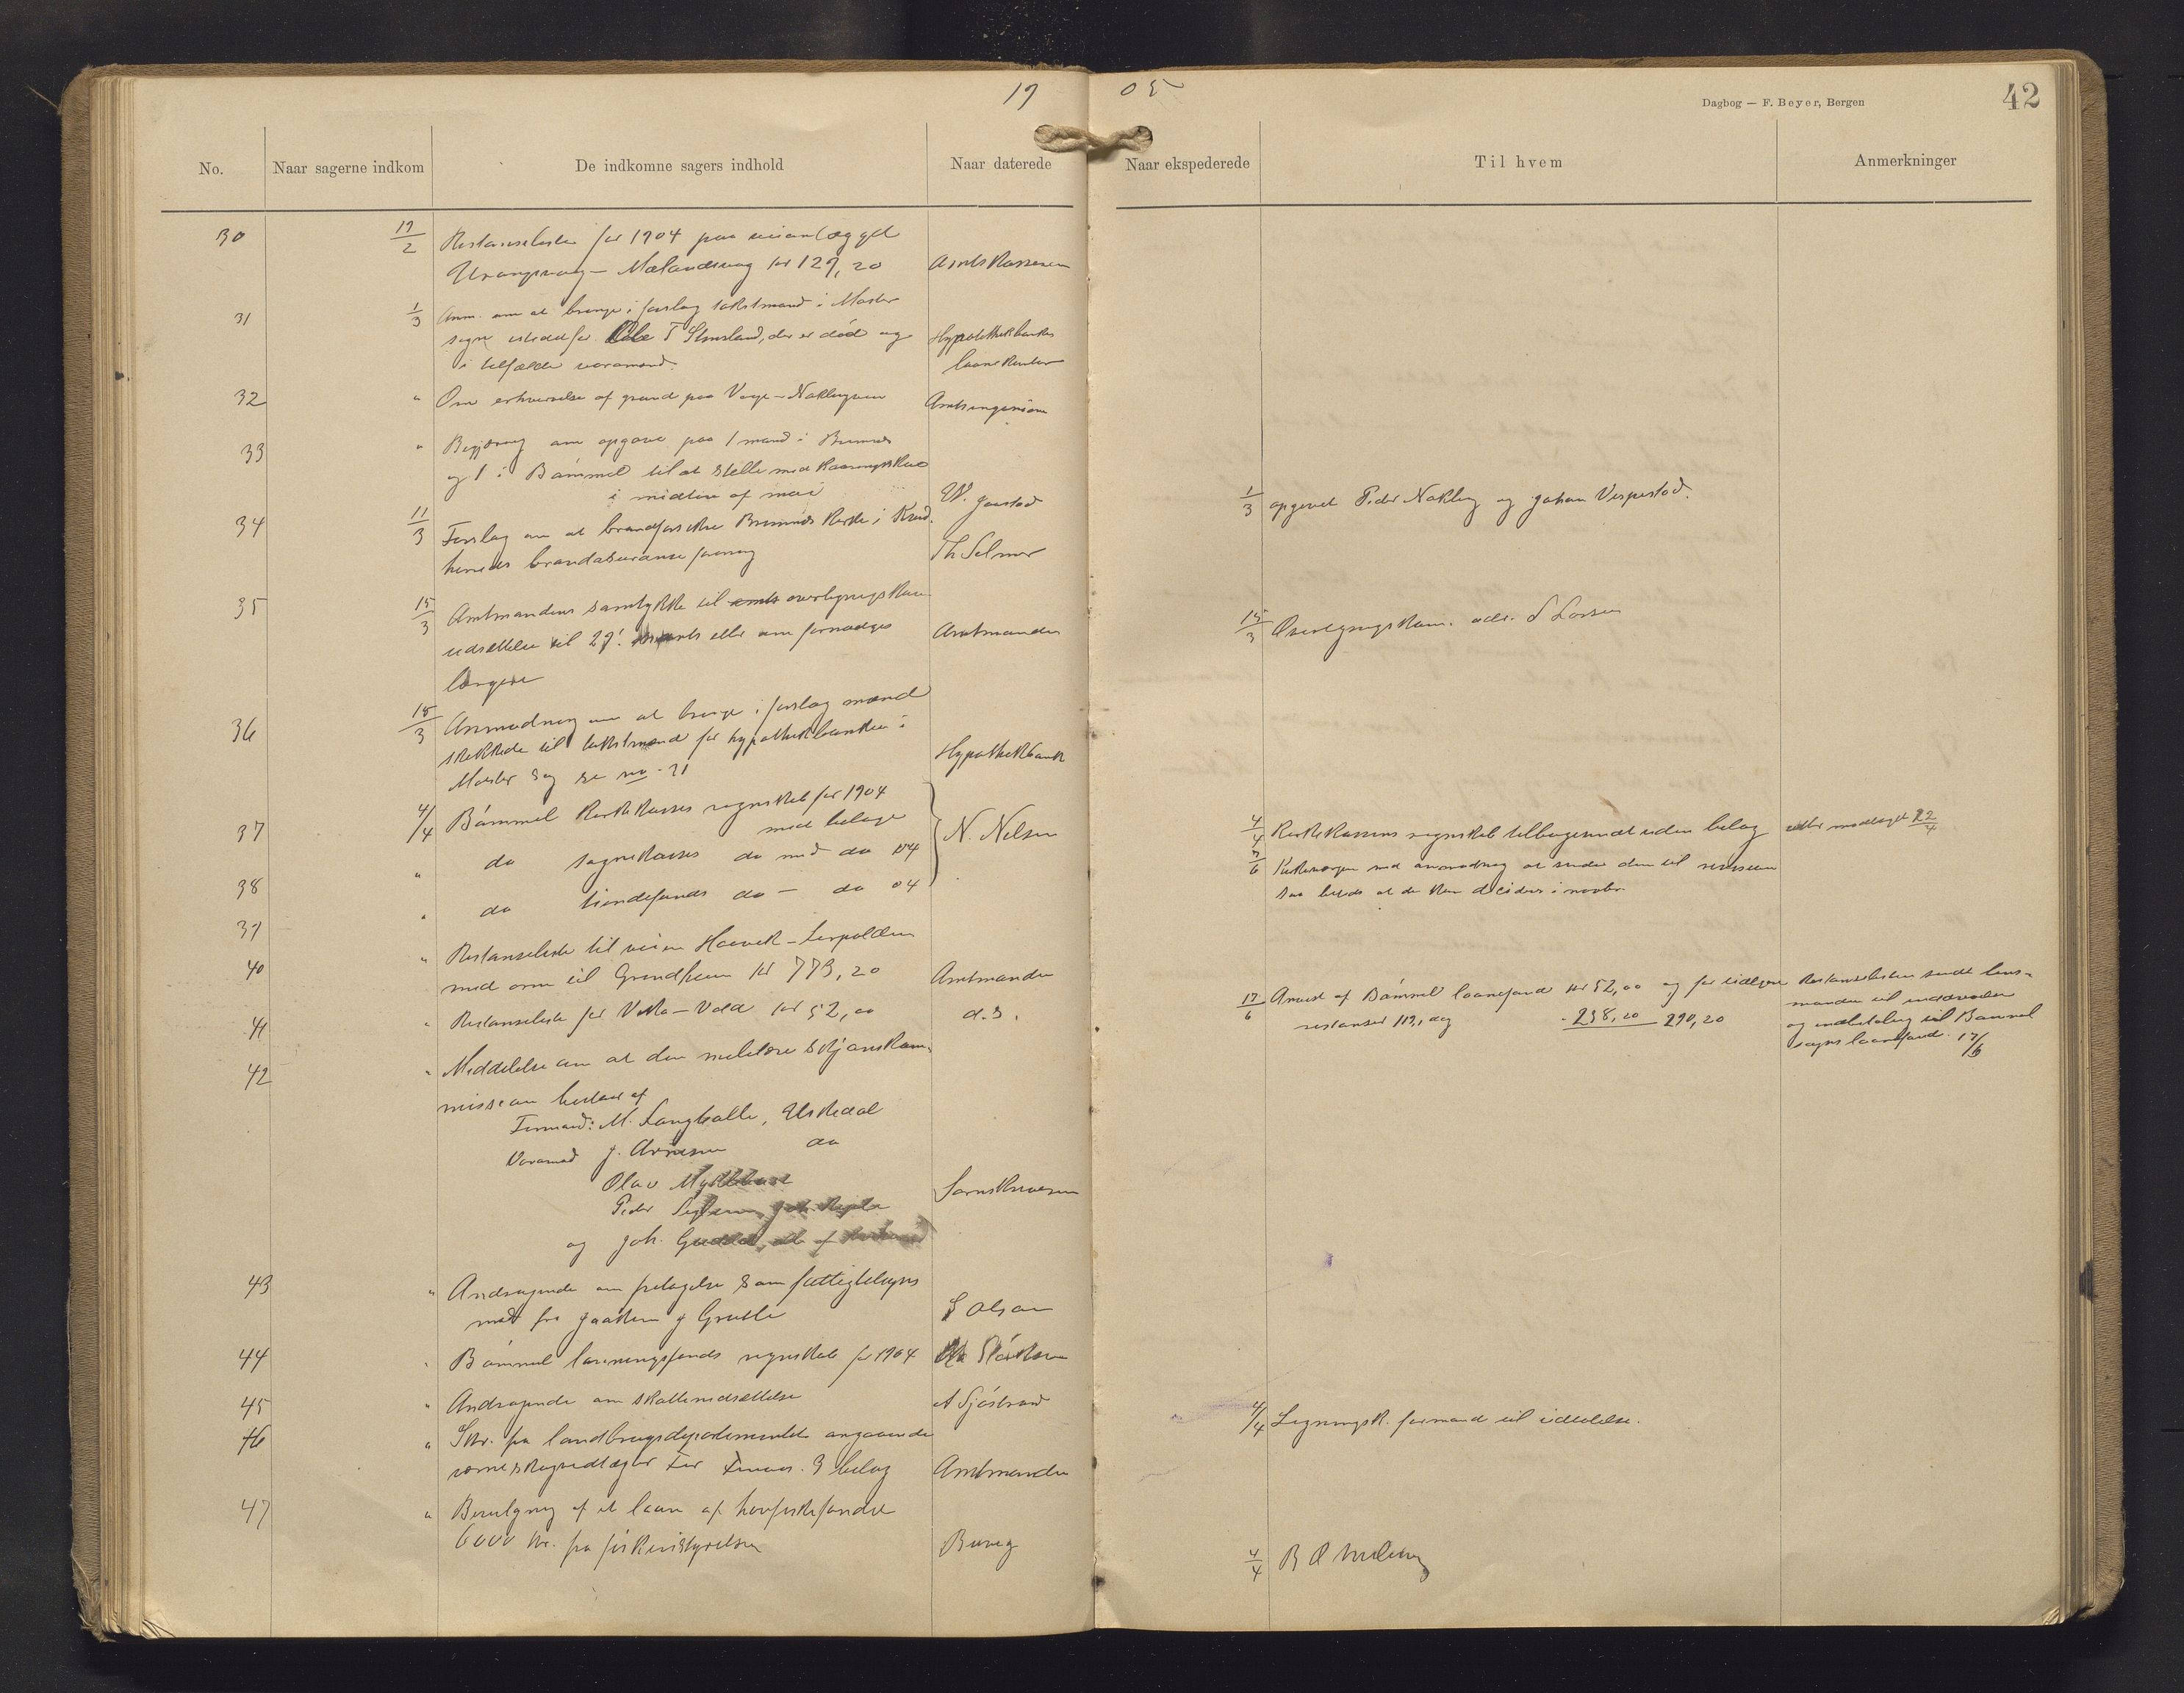 19 05
Dagbog — F. Beyer, Bergen
42
No.
Naar sagerne indkom
De indkomne sagers indhold
Naar daterede
Naar ekspederede
Til hvem
Anmerkninger
30 19/2 Restanseliste for 1904 paa veianlægget
Urangsvaag – Mælandsvaag kr 129,20 Amtskassereren
31 1/3 Anm. om at bringe i forslag takstmand i Moster
sogn istedetfor Ole T Stensland, der er død og Hypothekbankens
i tilfælde varamand. laanekontor
32 " Om erhvervelse af grund paa Vage – Nøklingveien Amtsingeniøren
33 " Begjæring om opgave paa 1 mand i Bremnes
og 1 i Bømmel til at stelle med
i midten af mai W. Jaastad
1/3 opgivet Peder Nøkling og Johan Vespestad.
34 11/3 Forslag om at brandforsikre Bremnes kirke i
herreds brandassuranseforening Th Selmer
35 15/3 Amtmandens samtykke til overligningskom.
udsættelse til 29. eller om fornødiges Amtmanden
længere
15/3 Overligningskom. adr. S Larsen
36 18/3 Anmodning om at bringe i forslag mænd
skikkede til takstmænd for hypothekbanken i
Moster sogn se no. 31 Hypothekbank
37 4/4 Bømmel kirkekasses regnskab for 1904
med bilage
38 " do sognekasses do med do 04 N. Nelsen
39 " do tiendefonds do – do 04
4/4 Kirkekassens regnskab tilbagesendt uden bilag atter modtaget 22/4
7/6 Kirkevergen med anmodning at sende dem til revisionen
saa betids at de kan decideres i novbr
40 " Restanseliste til veien Haavik – Lerpolden
med arm til Grindheim kr 773,20 Amtmanden
41 " Restanseliste for Vika – Vold kr 52,00 d.s.
17/6 Anvist af Bømmel laanefond kr 52,00 og for tidligere
restanser 113, dog - 238,20 290,20
Restanselisten sendt lens-
manden til inddrivelse
og indbetaling til Bømmel
sogns laanefond. 17/6
42 " Meddelelse om at den militære skjønskom-
mission bestaar af
Formand: M. Langballe, Eskedal
Varamd J. Arnesen do
Olav Myklebust
Peder
og Joh. Sorenskriveren
43 " Andragende om fritagelse som fattigtilsyns
mand fra Joakim J Grutle S Olson
44 " Bømmel foreningsfonds regnskab for 1904
45 " Andragende om skattenedsættelse A Sjøstrand
4/4 Ligningsk. formand til udtalelse.
46 " Skr. fra landbrugsdepartementet angaaende
værneskogvedtægter For 3 bilag Amtmanden
47 " Bevilgning af et laan af havfiskefondet
6000 kr. fra fiskeristyrelsen Buvig
4/4 B O